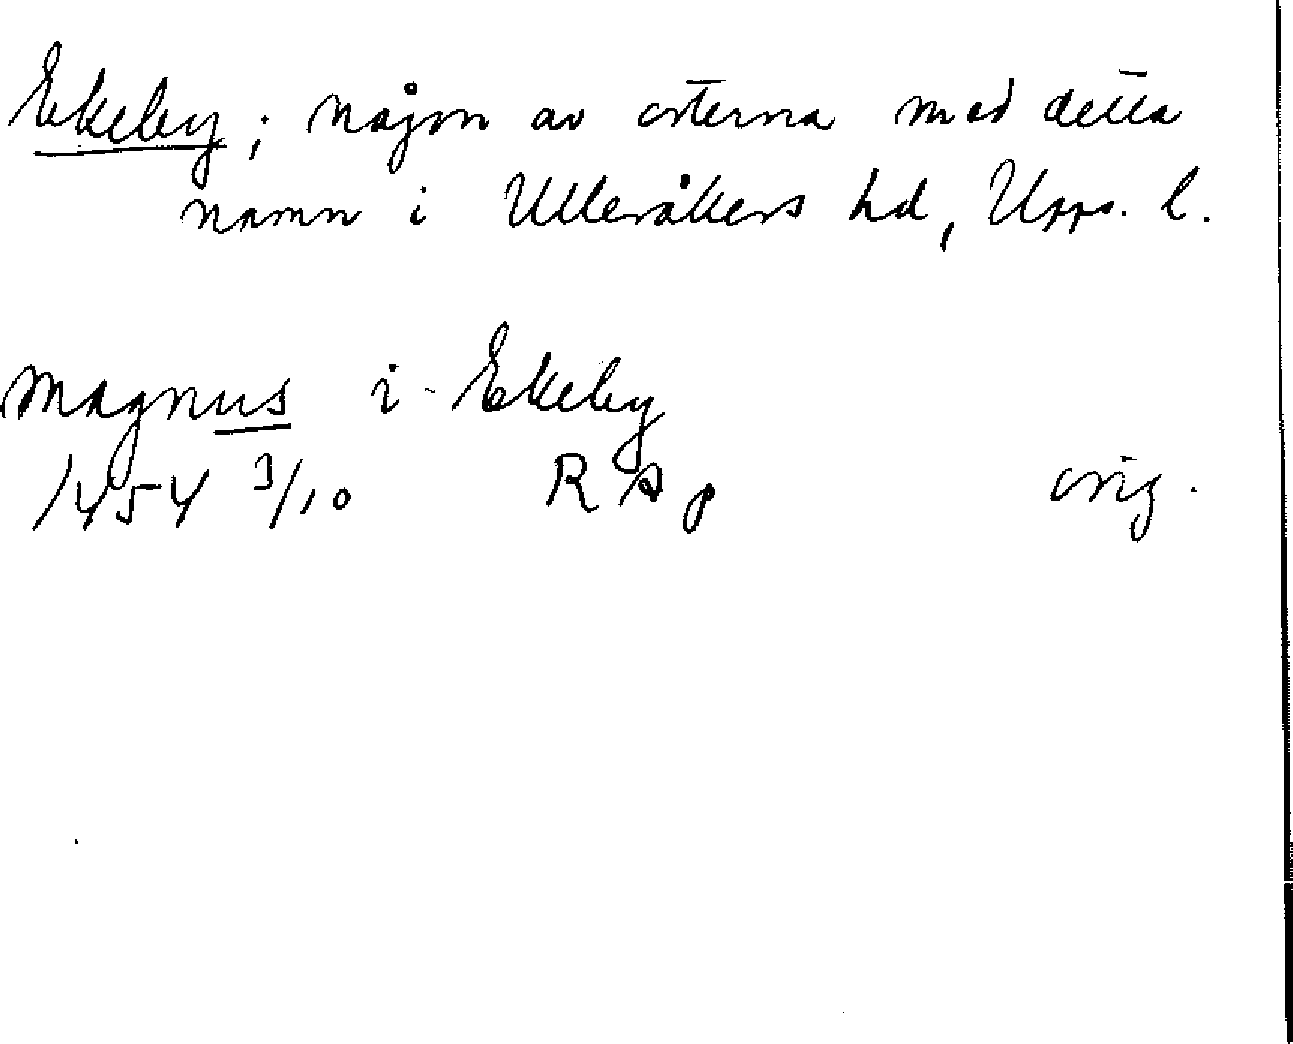 Ekeby; någon av orterna med detta
namn i Ulleråkers hd, Upps. l.
Magnus i Ekeby
1454 3/10 RAp orig.